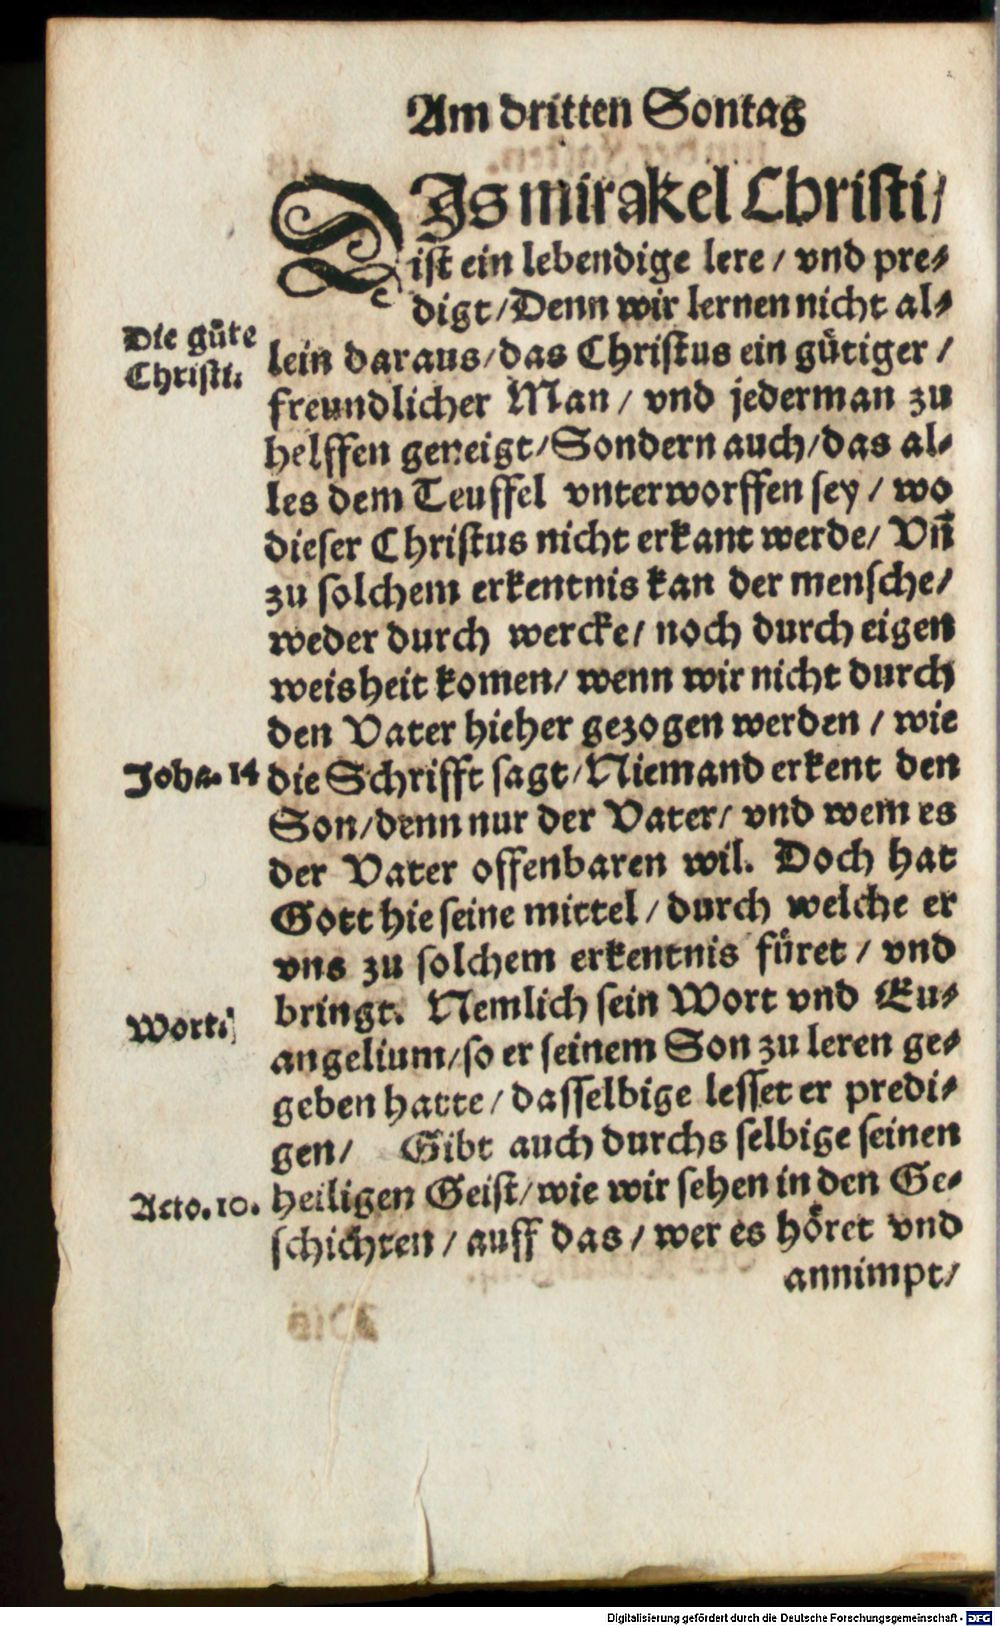 Am dritten Sontag
DIs mirakel Christi/
ist ein lebendige lere/ vnd pre-
digt/Denn wir lernen nicht al-
Die gůte
Christi.
lein daraus/das Christus ein gütiger/
freundlicher Man/ vnd jederman zu
helffen geneigt/Sondern auch/das al-
les dem Teuffel vnterworffen sey/ wo
dieser Christus nicht erkant werde/ Vñ
zu solchem erkentnis kan der mensche/
weder durch wercke/ noch durch eigen
weisheit komen/ wenn wir nicht durch
den Vater hieher gezogen werden/ wie
Joha. 14
die Schrifft sagt/Niemand erkent den
Son/denn nur der Vater/ vnd wem es
der Vater offenbaren wil. Doch hat
Gott hie seine mittel/ durch welche er
vns zu solchem erkentnis füret/ vnd
Wort.
bringt. Nemlich sein Wort vnd Eu-
angelium/so er seinem Son zu leren ge-
geben hatte/dasselbige lesset er predi-
gen/ Gibt auch durchs selbige seinen
Acto. 10.
heiligen Geist/wie wir sehen in den Ge-
schichten/ auff das/ wer es höret vnd
annimpt/
Digitalisierung gefördert durch die Deutsche Forschungsgemeinschaft - DFG